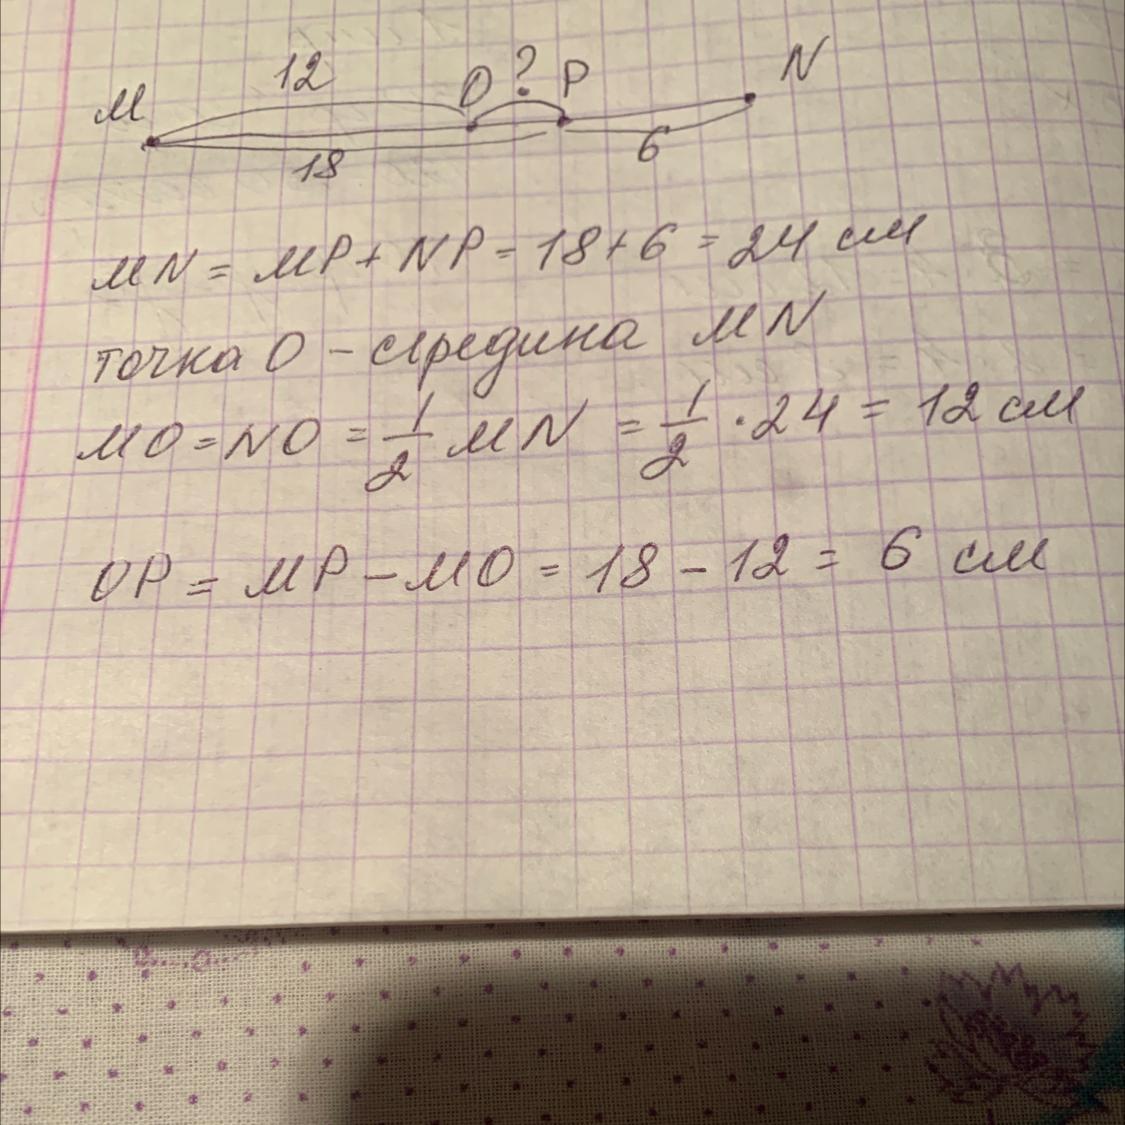 12 O ? P N
M
18 6
MN = MP + NP = 18 + 6 = 24 см
точка O – середина MN
MO = NO = 1/2 MN = 1/2 · 24 = 12 см
OP = MP – MO = 18 – 12 = 6 см